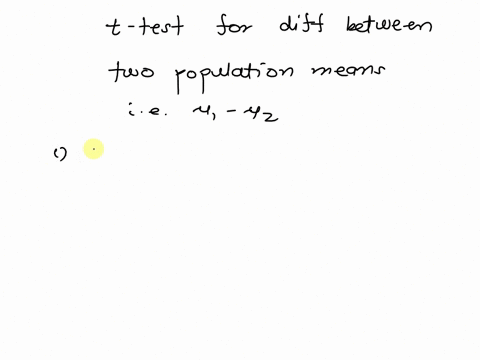 t-test for diff between
two population means
i.e. μ₁ - μ₂
1)